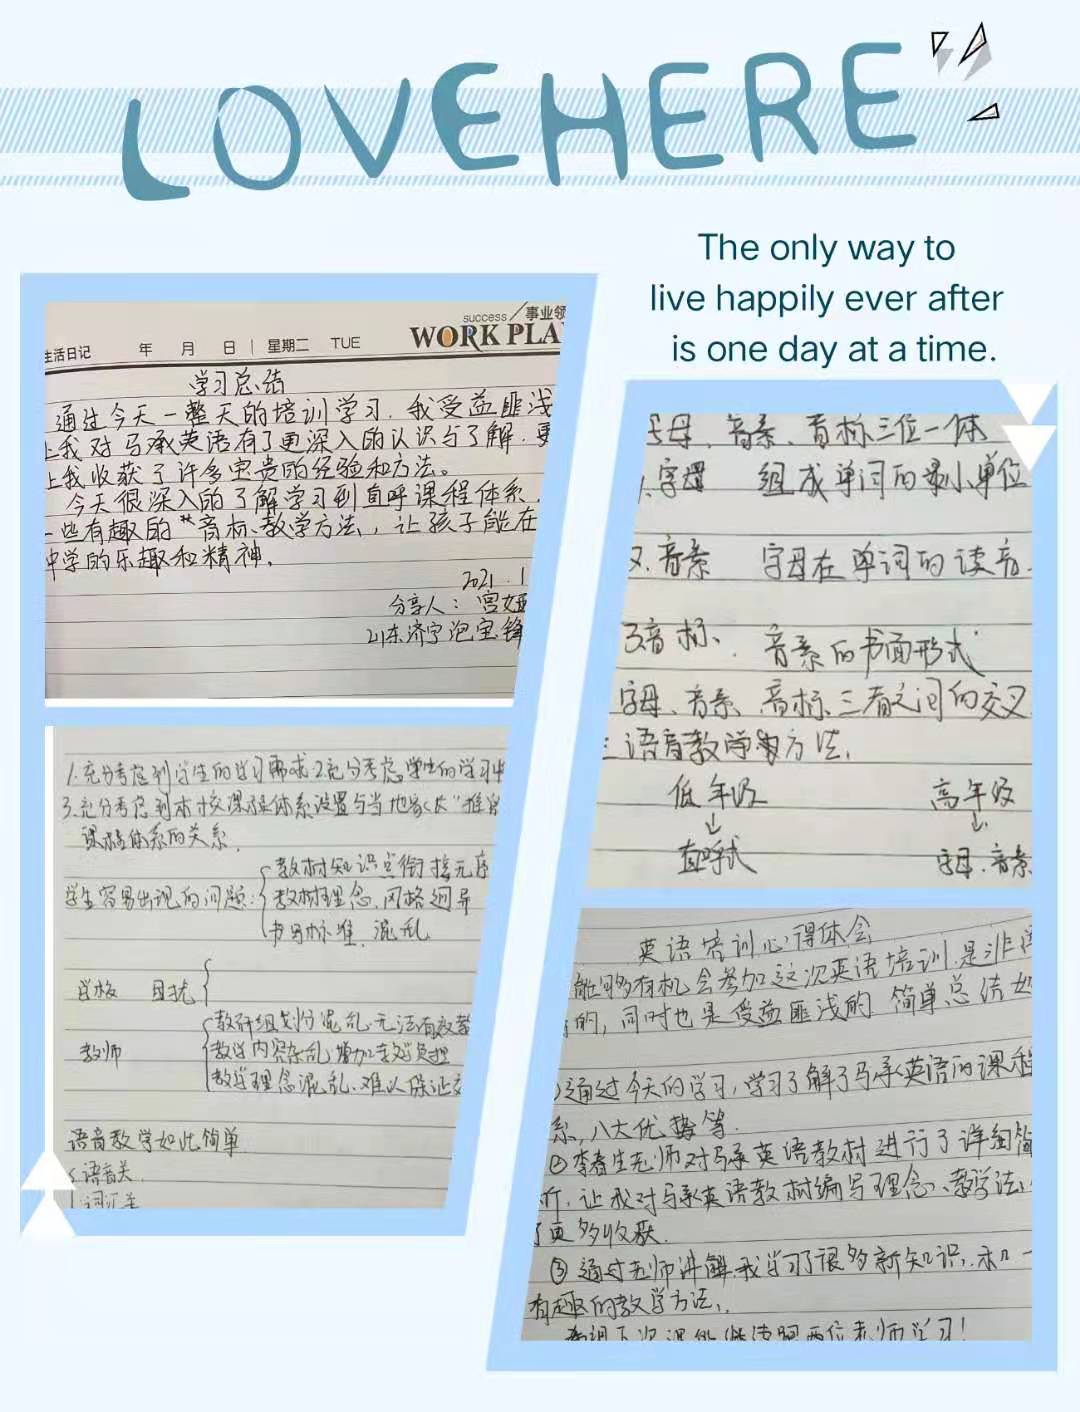 LOVEHERE
The only way to
live happily ever after
is one day at a time.
success/事业领
WORK PLA
生活日记 年 月 日 | 星期二 TUE
学习总结
通过今天一整天的培训学习，我受益匪浅
让我对马承英语有了更深入的认识与了解，更
让我收获了许多宝贵的经验和方法。
今天很深入的了解学习到直呼课程体系，
一些有趣的“音标教学方法，让孩子能在
中学的乐趣和精神。
2021.1
分享人：宫
山东济宁
字母、音素、音标三位一体
1.字母 组成单词的最小单位
2.音素 字母在单词的读音.
3音标、音素的书面形式
字母、音素、音标三者之间的交叉
语音教学方法.
低年级 高年级
↓ ↓
直呼式 字母.音素
1.充分考虑到学生的学习需求2.充分考虑学生的学习
3.充分考虑到本校课程体系设置与当地家长"推
课程体系的关系.
教材知识点衔接无序
学生容易出现的问题：教材理念.风格迥异
书写标准.混乱
学校 困扰
教研组划分混乱.无法有效
教师 教学内容杂乱.增加支出负担
教学理念混乱.难以保证
语音教学如此简单
语音关.
英语培训心得体会
能够有机会参加这次英语培训.是非
的，同时也是受益匪浅的 简单总结如
①通过今天的学习，学习了解了马承英语的课程
系，八大优势等.
②李春生老师对马承英语教材进行了详细
析，让我对马承英语教材编写理念、教学法
了更多收获.
③通过老师讲解.我学习了很多新知识.和一
有趣的教学方法.
下次课能继续跟两位老师学习！